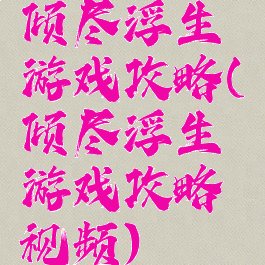 倾尽浮生
游戏攻略(
倾尽浮生
游戏攻略
视频)